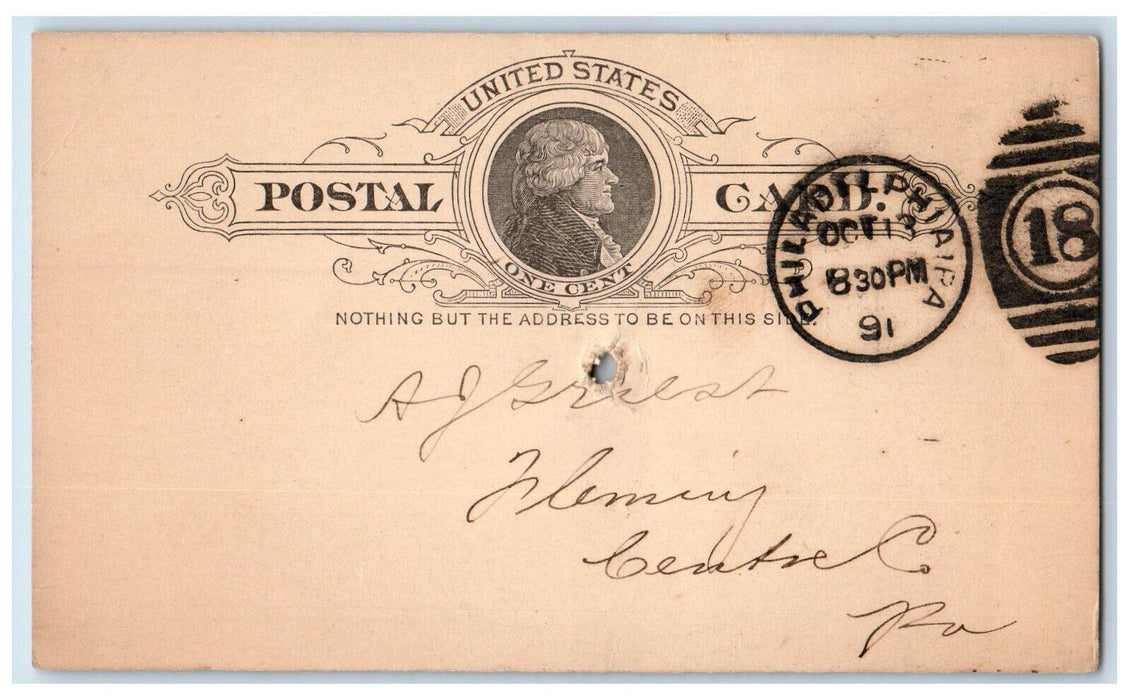 UNITED STATES
POSTAL CARD.
ONE CENT
NOTHING BUT THE ADDRESS TO BE ON THIS SIDE.
PHILADELPHIA PA
OCT 13
8 30 PM
91
18
A J Griest
Fleming
Centre Co.
Pa